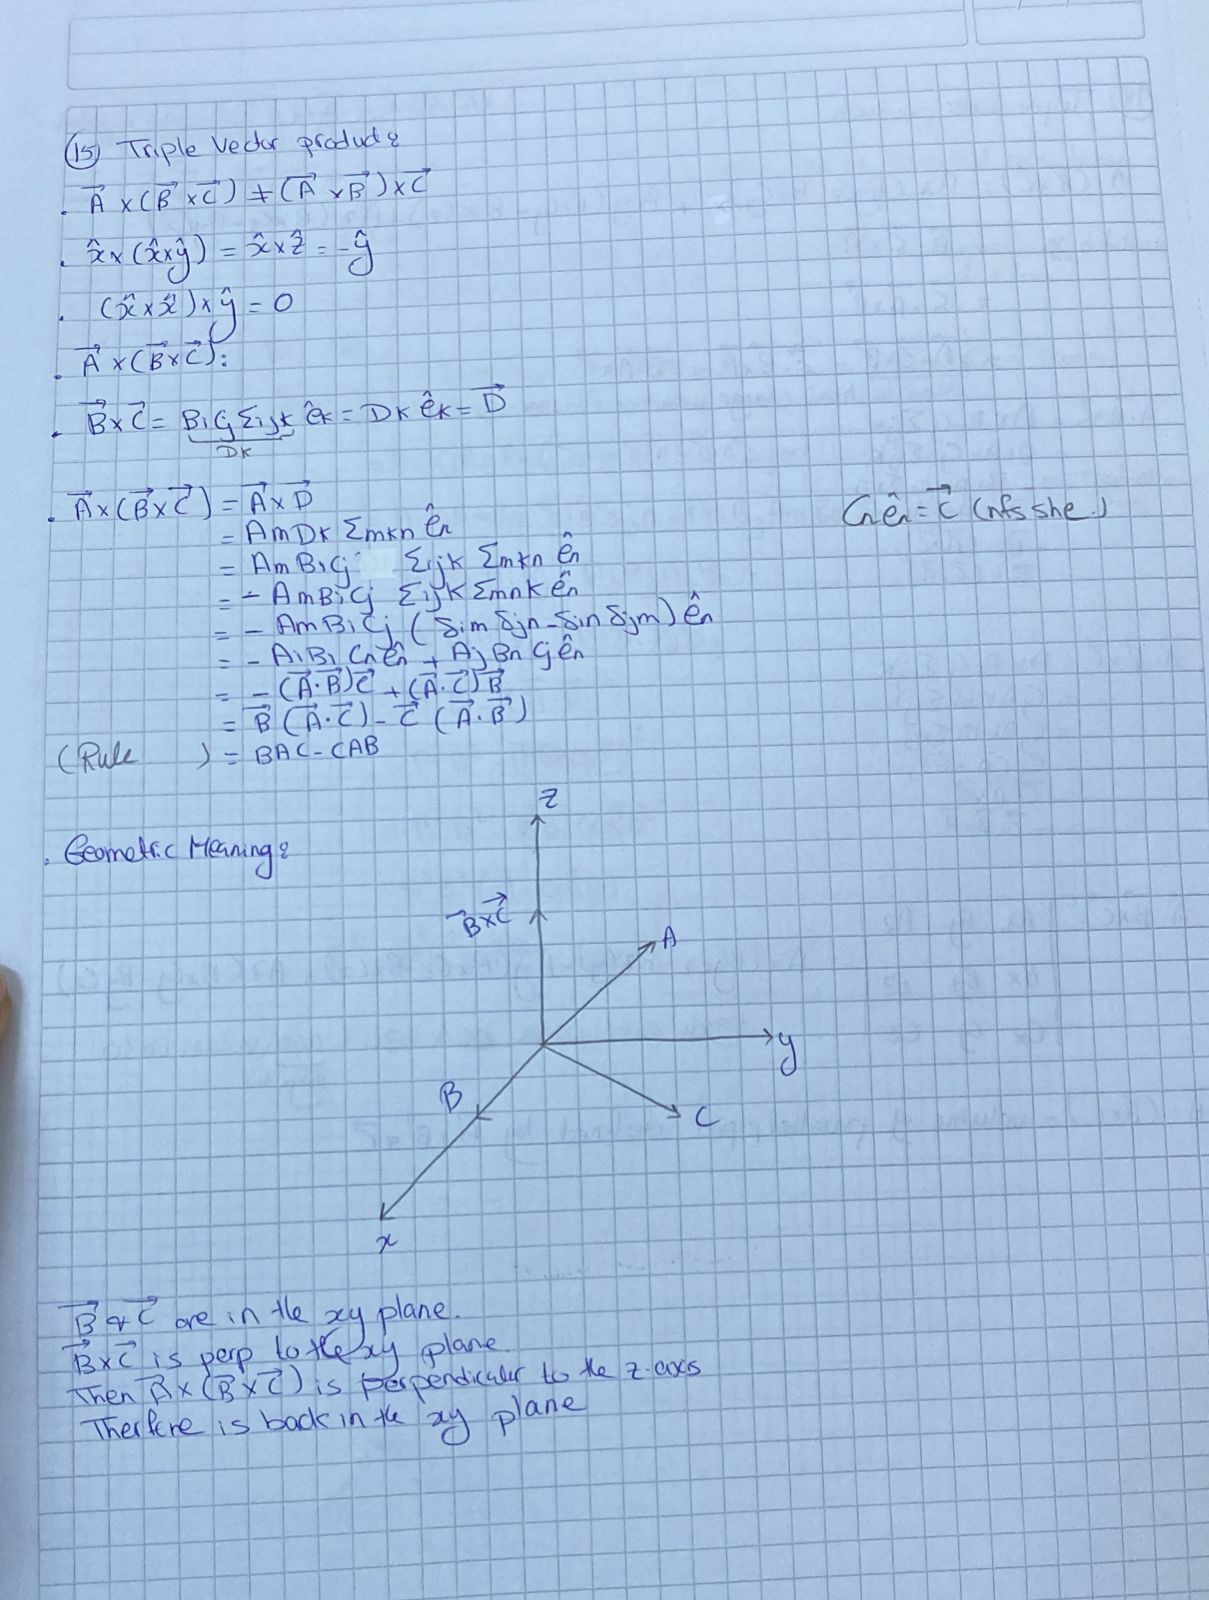 15 Triple Vector product:
. A⃗ × (B⃗ × C⃗) ≠ (A⃗ × B⃗) × C⃗
. x̂ × (x̂ × ŷ) = x̂ × ẑ = -ŷ
. (x̂ × x̂) × ŷ = 0
. A⃗ × (B⃗ × C⃗):
. B⃗ × C⃗ = Bi Cj Σijk êk = Dk êk = D⃗
Dk
. A⃗ × (B⃗ × C⃗) = A⃗ × D⃗
Cn ên = C⃗ (nfs she.)
= Am Dk Σmkn ên
= Am Bi Cj Σijk Σmkn ên
= - Am Bi Cj Σijk Σmnk ên
= - Am Bi Cj (δim δjn - δin δjm) ên
= - Ai Bi Cn ên + Aj Bn Cj ên
= - (A⃗·B⃗)C⃗ + (A⃗·C⃗)B⃗
= B⃗ (A⃗·C⃗) - C⃗ (A⃗·B⃗)
(Rule ) = BAC - CAB
z
. Geometric Meaning:
B⃗×C⃗
A
y
B
C
x
B⃗ & C⃗ are in the xy plane.
B⃗×C⃗ is perp to the xy plane
Then A⃗ × (B⃗ × C⃗) is perpendicular to the z-axis
Therfore is back in the xy plane